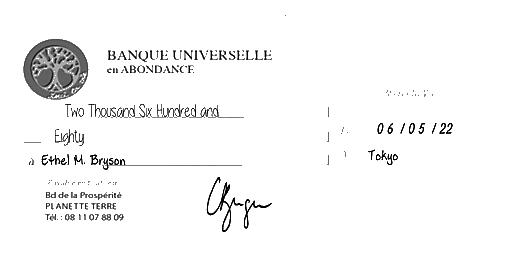 BANQUE UNIVERSELLE
en ABONDANCE
Two Thousand Six Hundred and
Eighty
06/05/22
à Ethel M. Bryson
Tokyo
Bd de la Prospérité
PLANETTE TERRE
Tél. : 08 11 07 88 09